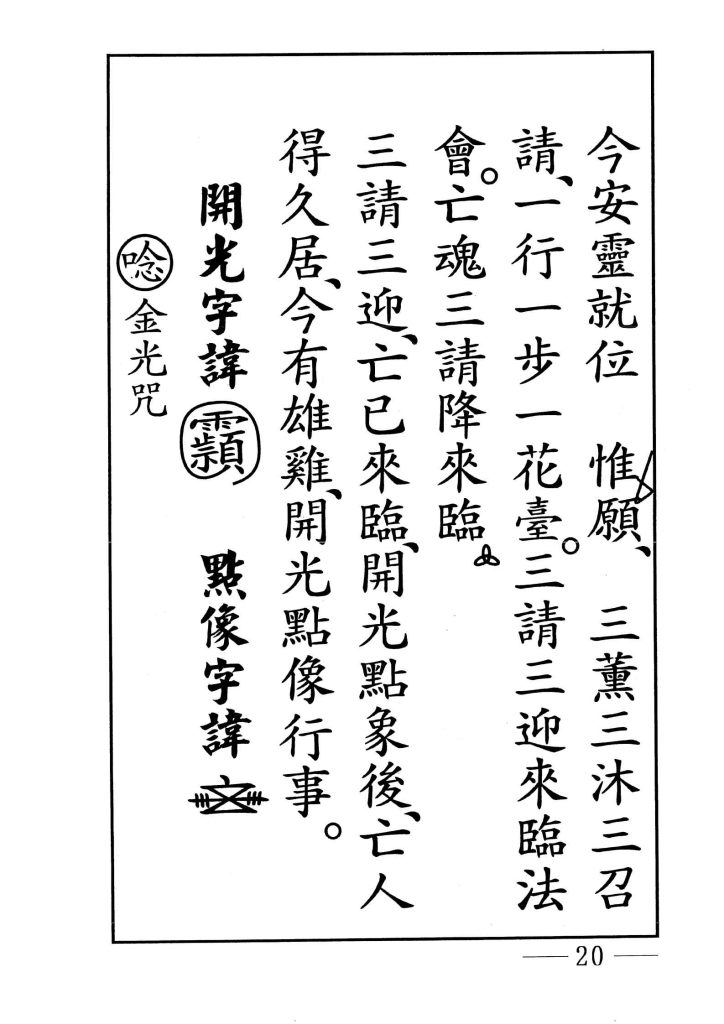 今安靈就位　惟願、　三薰三沐三召
請、一行一步一花臺。三請三迎來臨法
會。亡魂三請降來臨
三請三迎、亡已來臨、開光點象後、亡人
得久居、今有雄雞、開光點像行事。
開光字諱　點像字諱
唸 金光咒
20